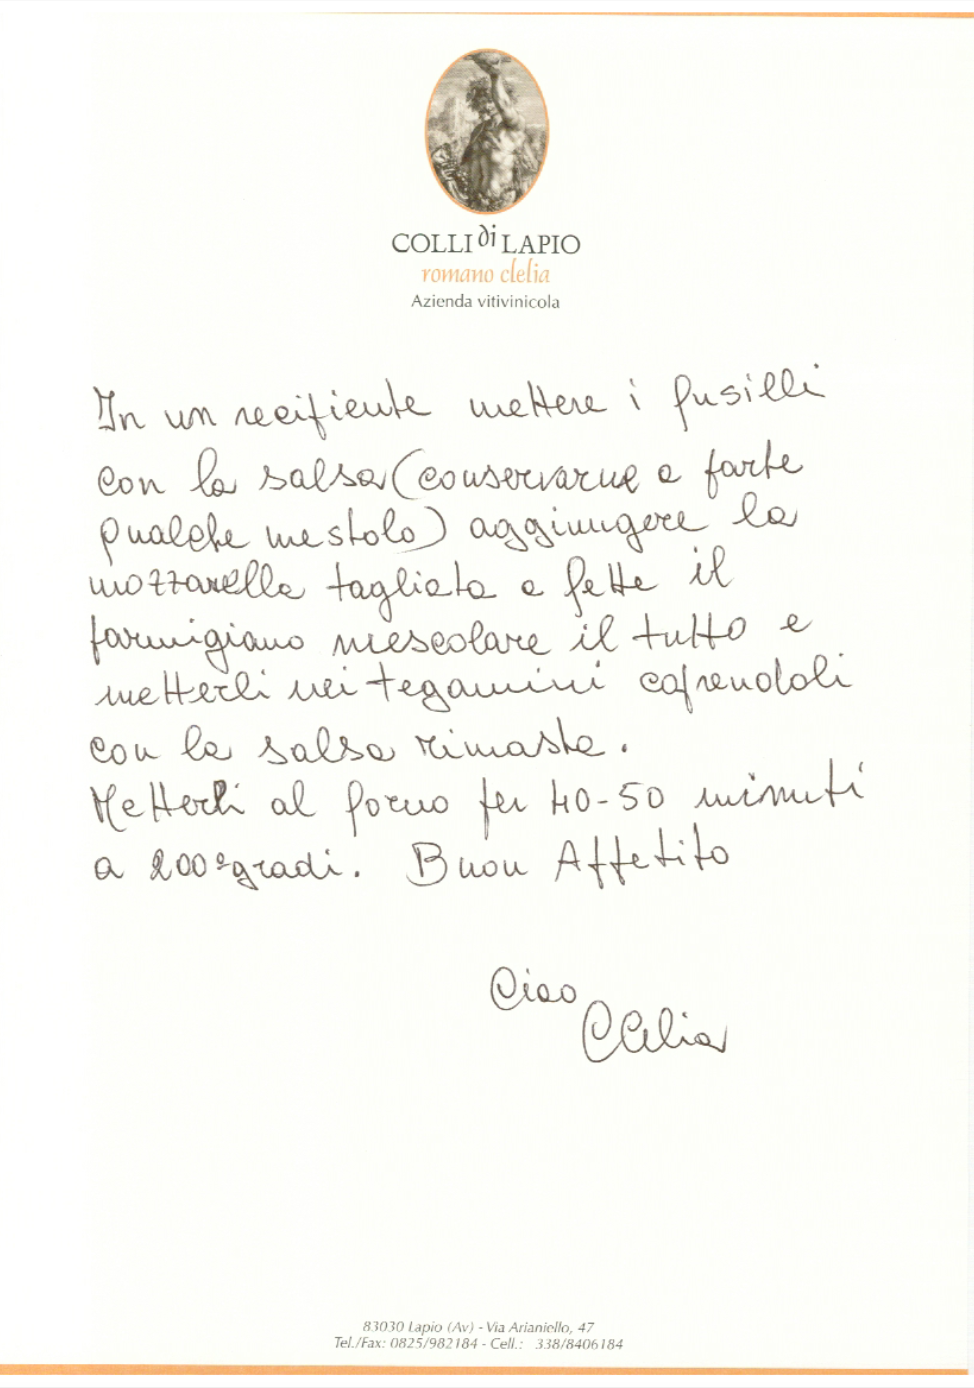 COLLI di LAPIO
romano clelia
Azienda vitivinicola
In un recipiente mettere i fusilli
con la salsa (conservarne a parte
qualche mestolo) aggiungere la
mozzarella tagliata a fette il
parmigiano mescolare il tutto e
metterli nei tegamini coprendoli
con la salsa rimasta.
Metterli al forno per 40-50 minuti
a 200° gradi. Buon Appetito
Ciao
Clelia
83030 Lapio (Av) - Via Arianiello, 47
Tel./Fax: 0825/982184 - Cell.: 338/8406184